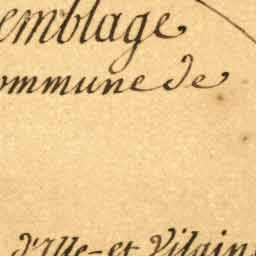 emblage
ommune de
d'Ille-et Vilain